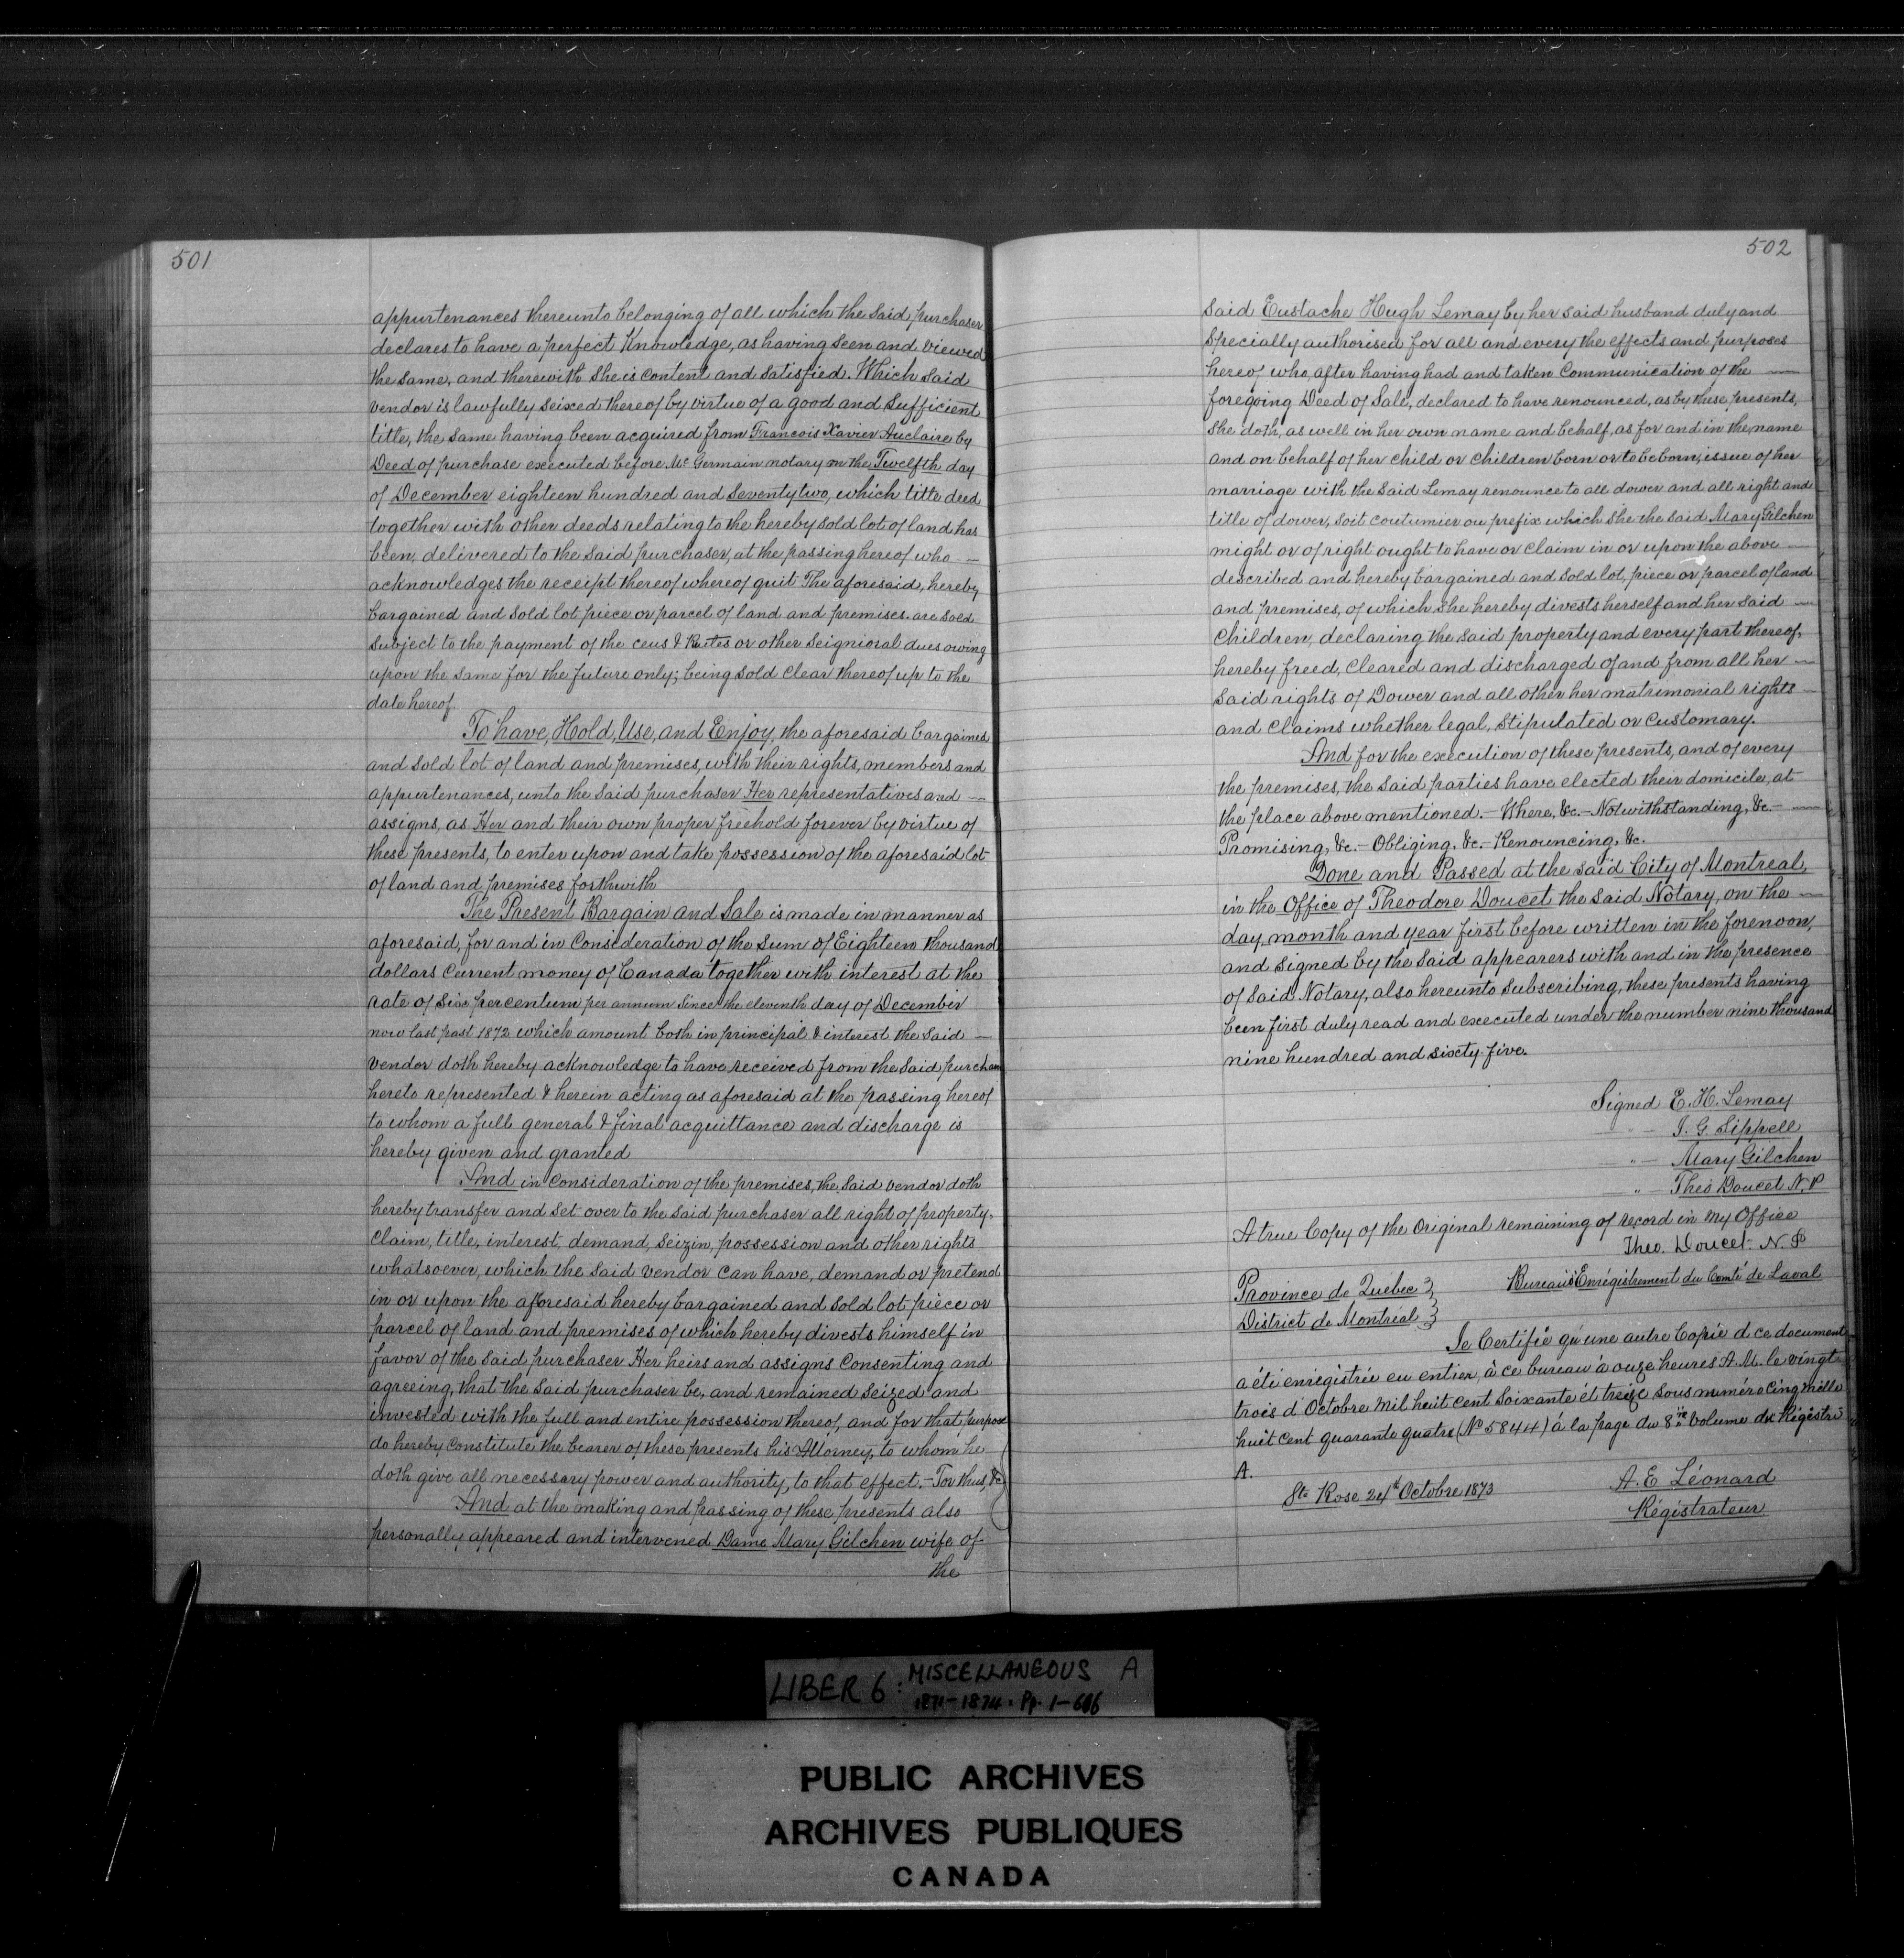 501
appurtenances thereunto belonging of all which the said purchaser
declares to have a perfect Knowledge, as having seen and viewed
the same, and therewith she is content and satisfied. Which said
vendor is lawfully seized thereof by virtue of a good and sufficient
title, the same having been acquired from Francois Xavier Auclaire by
Deed of purchase executed before Mr. Germain notary on the Twelfth day
of December eighteen hundred and seventy two, which title deed
together with other deeds relating to the hereby sold lot of land has
been delivered to the said purchaser, at the passing hereof who —
acknowledges the receipt thereof whereof quit The aforesaid, hereby
bargained and sold lot piece or parcel of land and premises. are sold
subject to the payment of the cens & Rentes or other Seignioral dues owing
upon the same for the future only; being sold clear thereof up to the
date hereof.
To have, Hold, Use, and Enjoy, the aforesaid bargained
and sold lot of land and premises, with their rights, members and
appurtenances, unto the said purchaser Her representatives and —
assigns, as Her and their own proper freehold forever by virtue of
these presents, to enter upon and take possession of the aforesaid lot
of land and premises forthwith
The Present Bargain and Sale is made in manner as
aforesaid, for and in Consideration of the sum of Eighteen thousand
dollars Current money of Canada together with interest at the
rate of Six percentum per annum since the eleventh day of December
now last past 1872 which amount both in principal & interest the said —
vendor doth hereby acknowledge to have received from the said purchaser
hereto represented & herein acting as aforesaid at the passing hereof
to whom a full general & final acquittance and discharge is
hereby given and granted
And in consideration of the premises, the said vendor doth
hereby transfer and set over to the said purchaser all right of property,
claim, title, interest, demand, seizin, possession and other rights
whatsoever, which the said vendor can have, demand or pretend
in or upon the aforesaid hereby bargained and sold lot piece or
parcel of land and premises of which hereby divests himself in
favor of the said purchaser Her heirs and assigns Consenting and
agreeing, that the said purchaser be, and remained seized and
invested with the full and entire possession thereof, and for that purpose
do hereby constitute the bearer of these presents his Attorney, to whom he
doth give all necessary power and authority, to that effect. — For thus, &c
And at the making and passing of these presents also
personally appeared and intervened Dame Mary Gilchen wife of
the
502
said Eustache Hugh Lemay by her said husband duly and
Specially authorised for all and every the effects and purposes
hereof who, after having had and taken Communication of the —
foregoing Deed of Sale, declared to have renounced, as by these presents,
she doth, as well in her own name and behalf, as for and in the name
and on behalf of her child or children born or to be born, issue of her
marriage with the said Lemay renounce to all dower and all right and
title of dower, soit coutumier ou prefix which she the said Mary Gilchen
might or of right ought to have or claim in or upon the above —
described and hereby bargained and sold lot, piece or parcel of land
and premises, of which she hereby divests herself and her said —
children, declaring the said property and every part thereof,
hereby freed, cleared and discharged of and from all her —
said rights of Dower and all other her matrimonial rights —
and claims whether legal, stipulated or customary.
And for the execution of these presents, and of every
the premises, the said parties have elected their domicile, at
the place above mentioned. — Where, &c. — Notwithstanding, &c. —
Promising, &c. — Obliging, &c. — Renouncing, &c.
Done and Passed at the said City of Montreal,
in the Office of Theodore Doucet the said Notary, on the —
day, month and year first before written in the forenoon,
and signed by the said appearers with and in the presence
of said Notary, also hereunto subscribing, these presents having
been first duly read and executed under the number nine thousand
nine hundred and sixty-five.
Signed E. H. Lemay
" — J. G. Sippell
" — Mary Gilchen
" — Theo Doucet N.P
A true Copy of the Original remaining of record in my Office
Theo. Doucet. N. P
Province de Québec } Bureau d'Enrégistrement du Comté de Laval
District de Montréal }
Je Certifie qu'une autre Copie d ce document
a été enrégistrée en entier, à ce bureau à onze heures A.M. le vingt
trois d'Octobre mil huit cent soixante et treize sous numéro cinq mille
huit cent quarante quatre (No 5844) à la page du 8me volume du Régistre
A.
Ste Rose 24th Octobre 1873
A. E Léonard
Régistrateur
LIBER 6: MISCELLANEOUS A
1871-1874: Pp. 1-606
PUBLIC ARCHIVES
ARCHIVES PUBLIQUES
CANADA